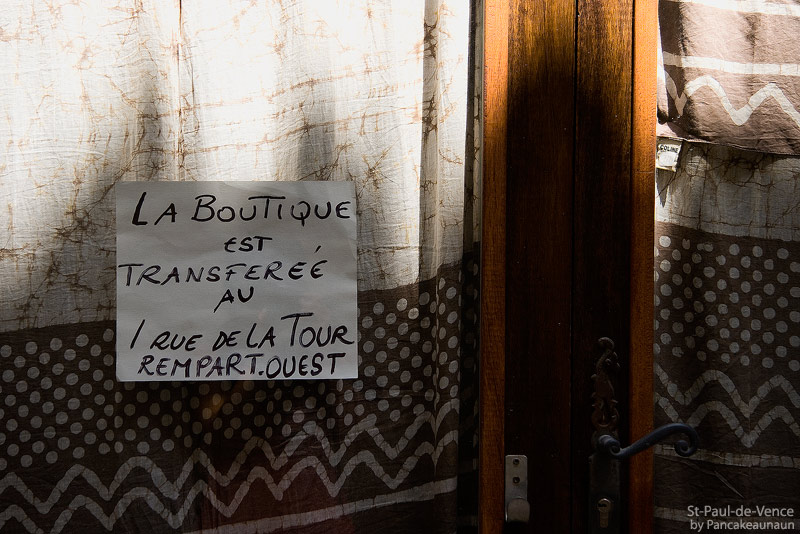 LA BOUTIQUE
EST
TRANSFEREÉ
AU
1 RUE DE LA TOUR
REMPART.OUEST
COLINE
St-Paul-de-Vence
by Pancakeaunaun